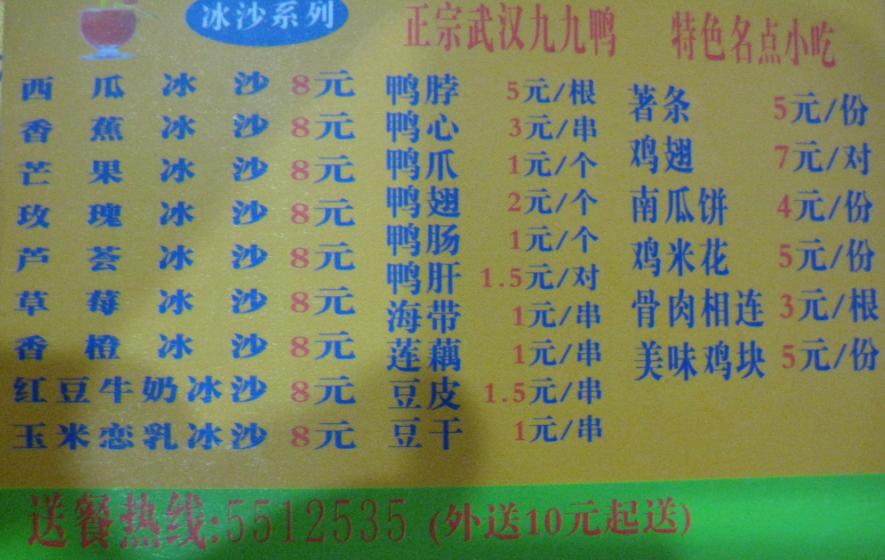 冰沙系列
西瓜冰沙 8元
香蕉冰沙 8元
芒果冰沙 8元
玫瑰冰沙 8元
芦荟冰沙 8元
草莓冰沙 8元
香橙冰沙 8元
红豆牛奶冰沙 8元
玉米恋乳冰沙 8元
正宗武汉九九鸭
鸭脖 5元/根
鸭心 3元/串
鸭爪 1元/个
鸭翅 2元/个
鸭肠 1元/个
鸭肝 1.5元/对
海带 1元/串
莲藕 1元/串
豆皮 1.5元/串
豆干 1元/串
特色名点小吃
薯条 5元/份
鸡翅 7元/对
南瓜饼 4元/份
鸡米花 5元/份
骨肉相连 3元/根
美味鸡块 5元/份
送餐热线:5512535 (外送10元起送)